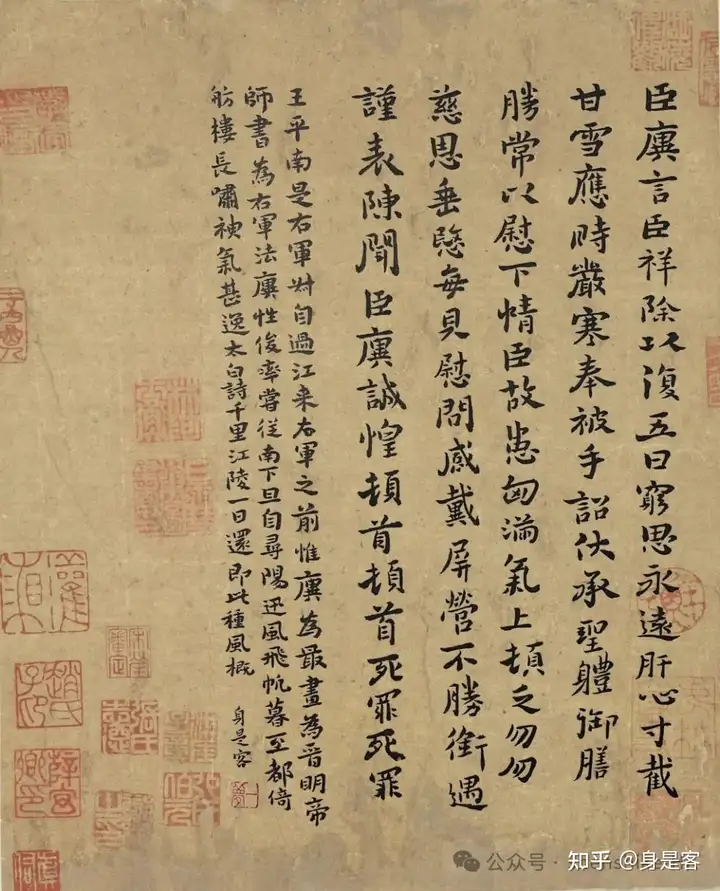 臣廙言臣祥除以復五日窮思永遠肝心寸截
甘雪應時嚴寒奉被手詔伏承聖體御膳
勝常以慰下情臣故患匈滿氣上頓乏勿勿
慈恩垂愍每見慰問感戴屏營不勝銜遇
謹表陳聞臣廙誠惶頓首頓首死罪死罪
王平南是右軍叔自過江來右軍之前惟廙為最畫為晉明帝
師書為右軍法廙性俊率嘗從南下旦自尋陽迅風飛帆暮至都倚
舫樓長嘯神氣甚逸太白詩千里江陵一日還即此種風概
身是客
公众号
知乎 @身是客